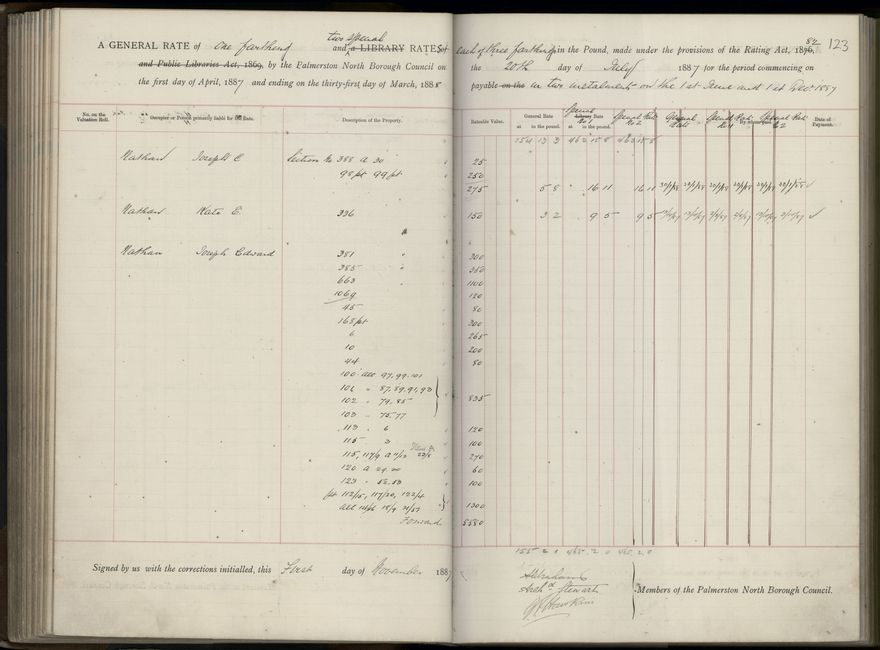 two special
A GENERAL RATE of One farthing and a LIBRARY RATES of
and Public Libraries Act, 1869, by the Palmerston North Borough Council on
the first day of April, 1887 and ending on the thirty-first day of March, 1888
82 123
each of three farthings in the Pound, made under the provisions of the Rating Act, 1876,
the 20th day of July 1887 for the period commencing on
payable on the in two instalments on the 1st June and 1st Decr 1887
No. on the Valuation Roll.
Occupier or Person primarily liable for the Rate.
Description of the Property.
Rateable Value.
General Rate at in the pound.
Special No 1 Library Rate at in the pound.
Special Rate No 2
General Rate
Special Rate No 1
Special Rate No 2
By
Date of Payment.
154 13 3 462 15 8 463 15 8
Nathan Joseph E Section No 388 A 30 25
98pt 99pt 250
275 5 8 16 11 16 11
Nathan Kate E. 336 150 3 2 9 5 9 5
Nathan Joseph Edward 381 300
385 350
663 1100
1069 120
45 80
168pt 300
6 265
10 200
44 80
100 all 97, 99, 101
101 " 87, 89, 91, 93
102 " 79, 85 835
103 " 75, 77
113 " 6 120
115 3 100
115, 117/9 A 270
120 A 29, 30 60
123 " 52, 53 100
pt 112/15, 117/20, 122/4
all 18/9 1300
Forward 5580
155 2 1 465 2 0 465 2 0
Signed by us with the corrections initialled, this First day of November 1887
Abrahams
Archd Stewart
Hankins
Members of the Palmerston North Borough Council.